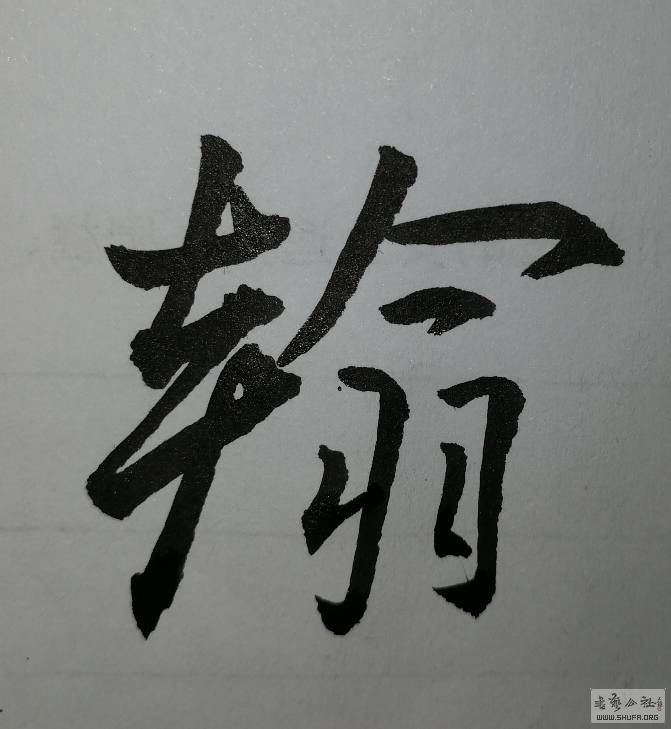 翰
书艺公社
WWW.SHUFA.ORG